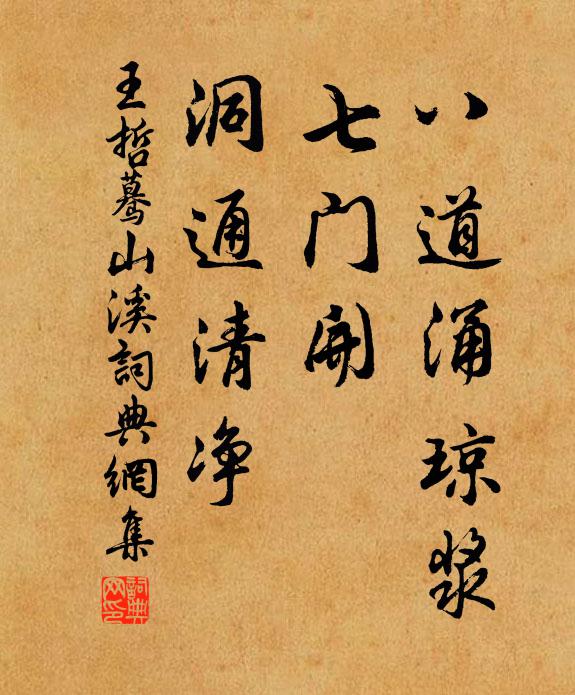 八道涌琼浆
七门开
洞通清净
王哲蓦山溪詞典網集
詞典
网印